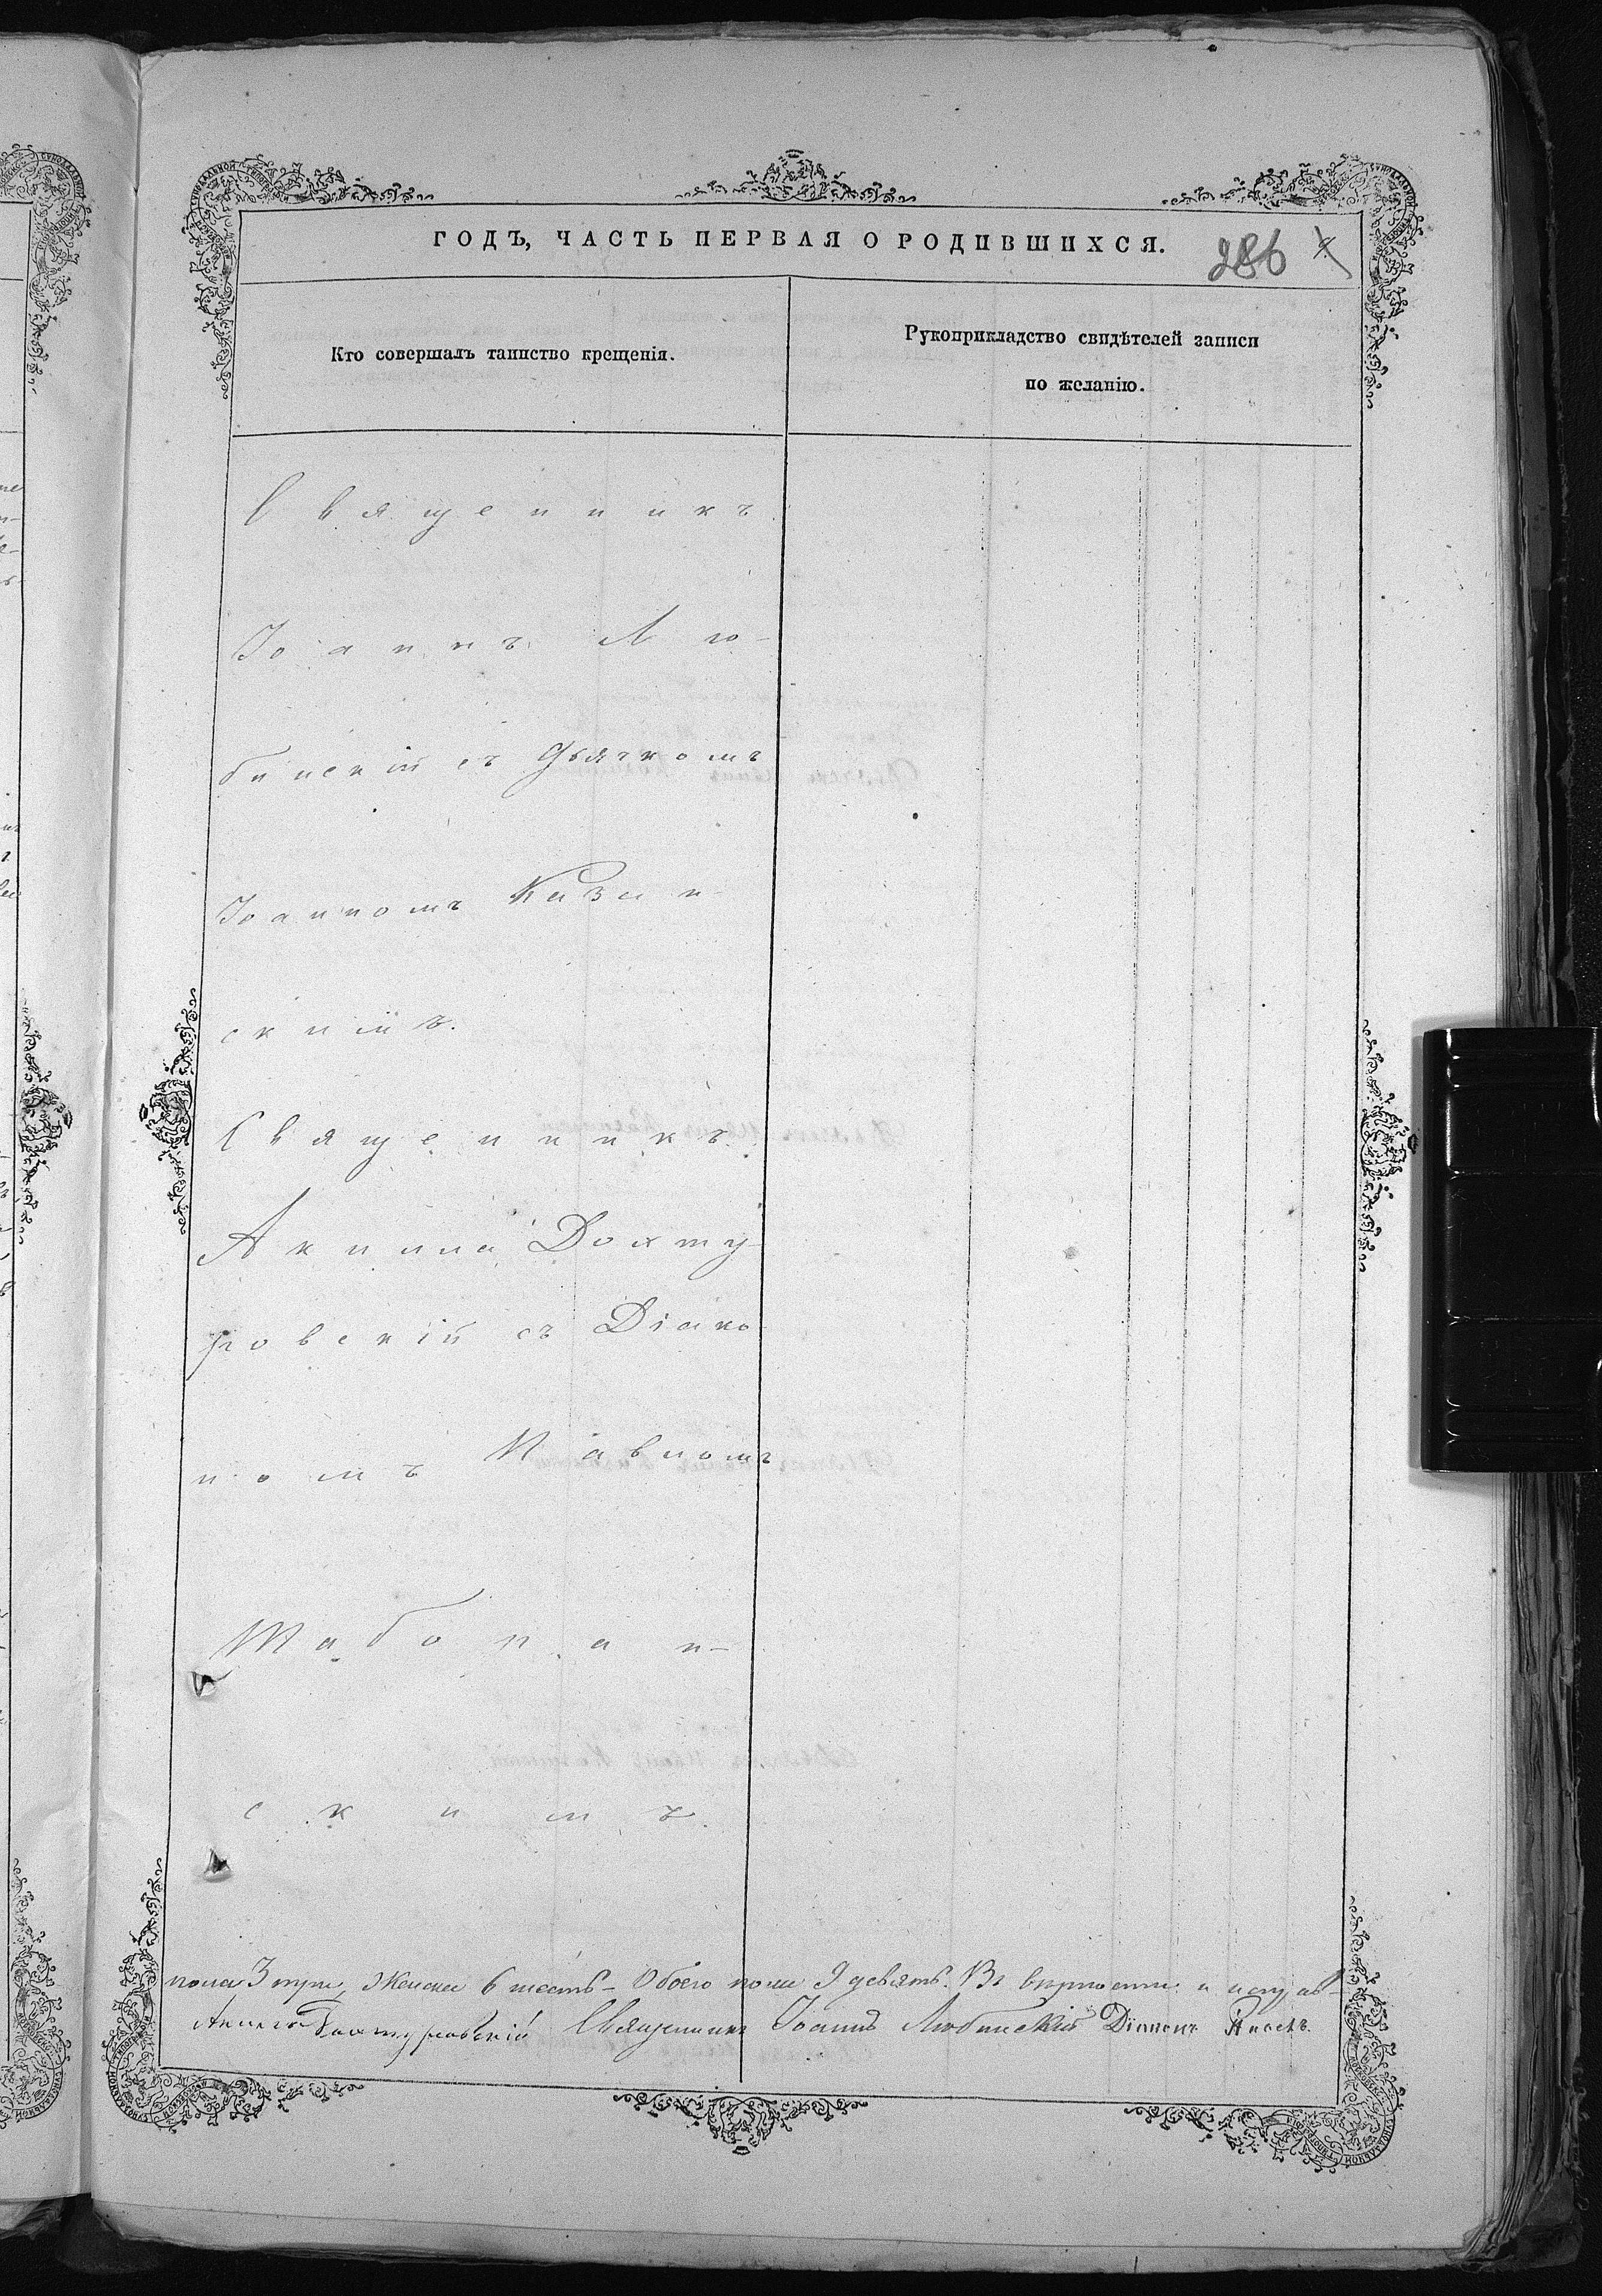 ГОДЪ, ЧАСТЬ ПЕРВАЯ О РОДИВШИХСЯ.
286
Кто совершалъ таинство крещенія.
Рукоприкладство свидѣтелей записи
по желанію.
Священникъ
Іоаннъ Лю-
бинскій съ Дьячкомъ
Іоанномъ Казан-
скимъ.
Священникъ
Акила Дохту
ровскій съ Діако
номъ Павломъ
Шабо ан-
скимъ.
пола 3 три, Женска 6 шесть - Обоего пола 9 девять. Въ верности и
Акила Дохтуровскій Священникъ Іоаннъ Любинскій Діаконъ Павелъ